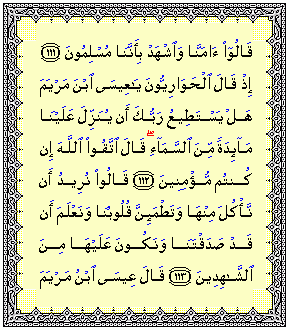 قَالُوٓا۟ ءَامَنَّا وَٱشْهَدْ بِأَنَّنَا مُسْلِمُونَ ﴿١١١﴾
إِذْ قَالَ ٱلْحَوَارِيُّونَ يَـٰعِيسَى ٱبْنَ مَرْيَمَ
هَلْ يَسْتَطِيعُ رَبُّكَ أَن يُنَزِّلَ عَلَيْنَا
مَآئِدَةً مِّنَ ٱلسَّمَآءِ ۖ قَالَ ٱتَّقُوا۟ ٱللَّهَ إِن
كُنتُم مُّؤْمِنِينَ ﴿١١٢﴾ قَالُوا۟ نُرِيدُ أَن
نَّأْكُلَ مِنْهَا وَتَطْمَئِنَّ قُلُوبُنَا وَنَعْلَمَ أَن
قَدْ صَدَقْتَنَا وَنَكُونَ عَلَيْهَا مِنَ
ٱلشَّـٰهِدِينَ ﴿١١٣﴾ قَالَ عِيسَى ٱبْنُ مَرْيَمَ